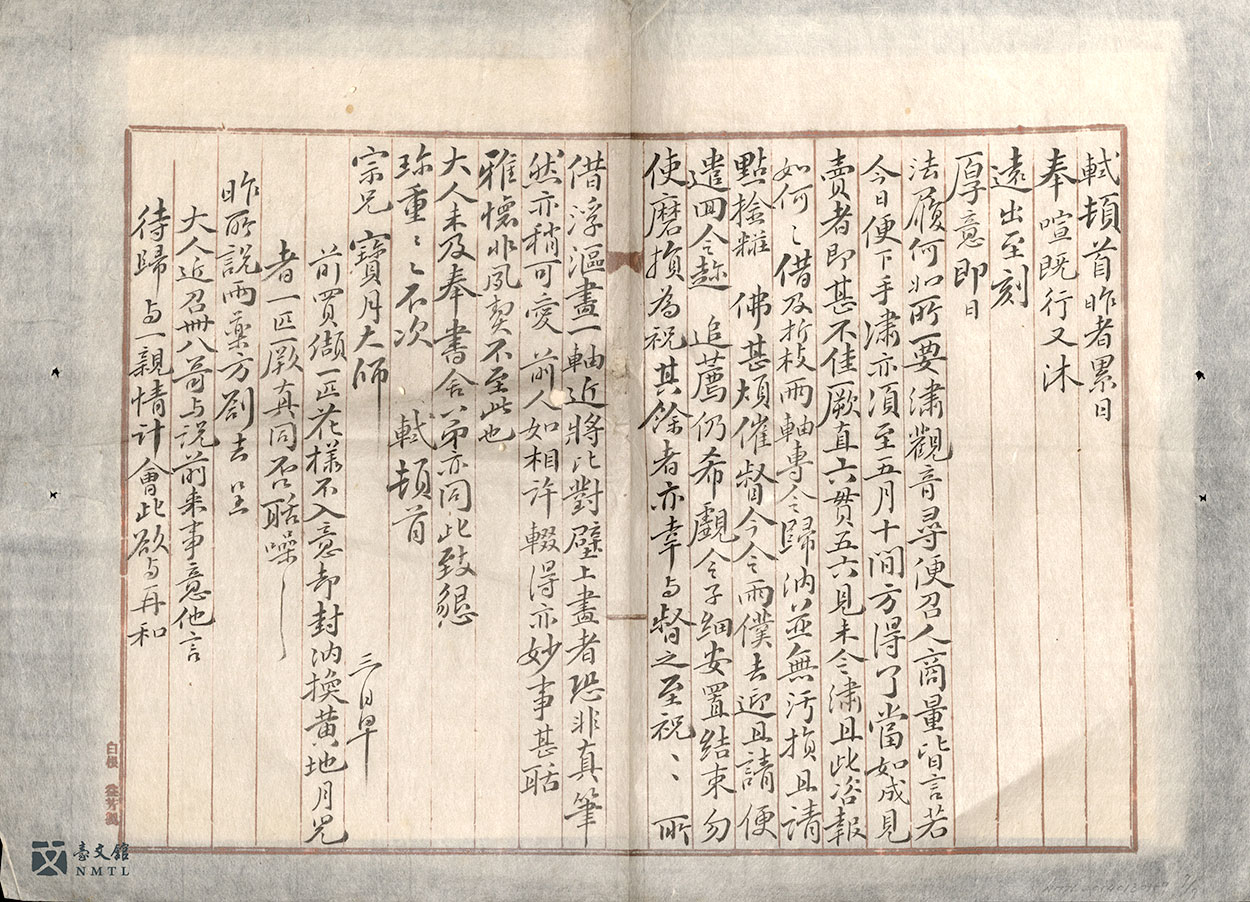 軾頓首昨者累日
奉喧既行又沐
遠出至刻
厚意即日
法履何如所要繡觀音尋便召人商量皆言若
今日便下手繡亦須至五月十間方得了當如成見
賣者即甚不佳厥直六貫五六見未令繡且此咨報
如何〻借及折枝兩軸專令歸納並無汚損且請
點撿糚 佛甚煩催督今令兩僕去迎且請便
遣回令趂 追薦仍希覷令子細安置結束勿
使磨損為祝其餘者亦幸与督之至祝〻 所
借浮漚畫一軸近將比對壁上畫者恐非真筆
然亦稍可愛 前人如相許輟得亦妙事甚聒
雅懷非夙契不至此也
大人未及奉書舍弟亦同此致懇
珍重〻〻不次 軾頓首
宗兄寶月大師 三日早
前買纈一匹花樣不入意却封納換黃地月兒
者一匹厥真同否聒噪〻
昨所說兩藥方劄去呈
大人近召卅八哥与說前来事意他言
待歸与一親情計會此欲与再和
臺文館
NMTL